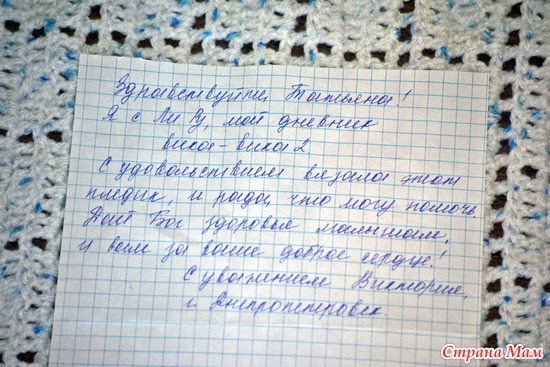 Здравствуйте, Татьяна!
Я с Ли Ру, мой дневник
вика-вика2
С удовольствием вязала этот
пледик, и рада, что могу помочь
Дай Бог здоровья малышам,
и вам за ваше доброе сердце!
С уважением Виктория,
г. Днепропетровск.
Страна Мам